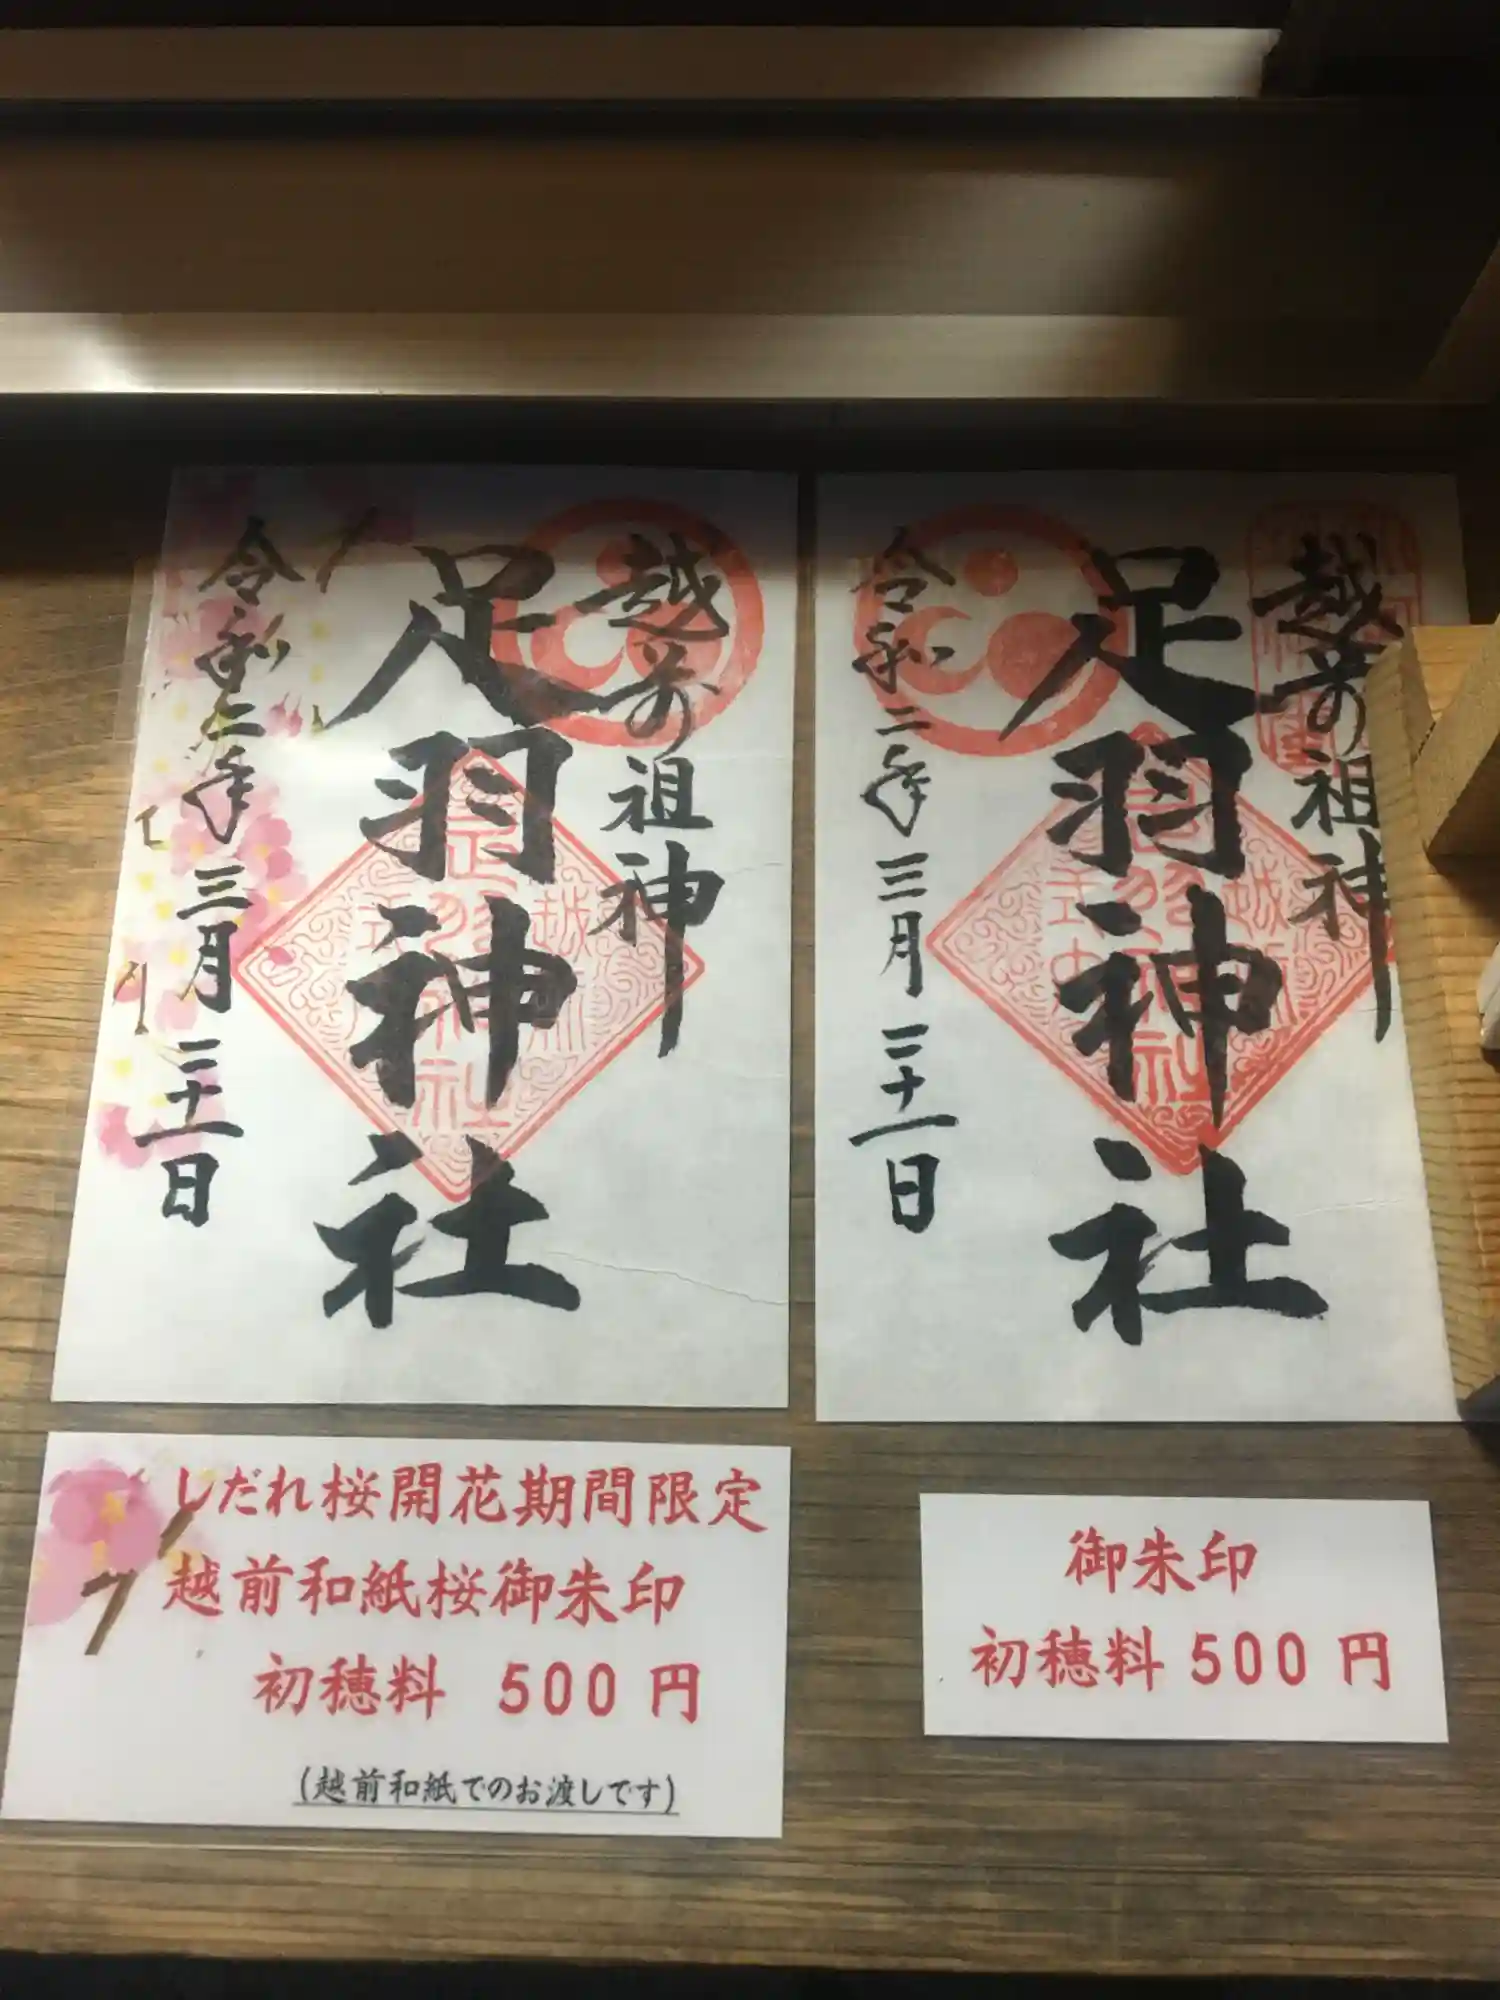 越前の祖神
足羽神社
令和二年三月二十一日
越前の祖神
足羽神社
令和二年三月二十一日
しだれ桜開花期間限定
越前和紙桜御朱印
初穂料 500円
(越前和紙でのお渡しです)
御朱印
初穂料 500円